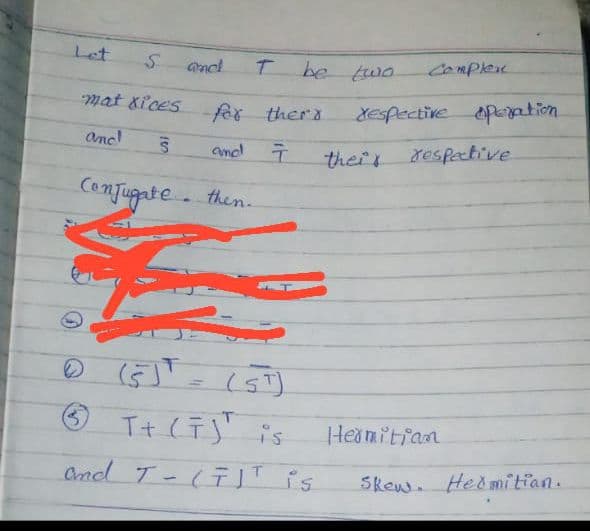 Let S and T be two Complex
matrices for there respective operation
and S̅ and T̅ their respective
Conjugate. then.
④ (S̅)ᵀ = (S̅ᵀ̅)
⑤ T + (T̅)ᵀ is Hermitian
and T - (T̅)ᵀ is Skew. Hermitian.